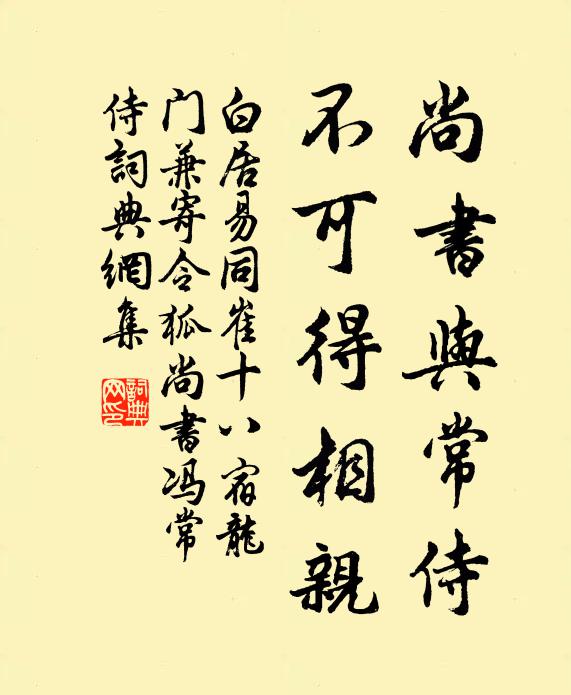 尚書與常侍
不可得相親
白居易同崔十八宿龍
门兼寄令狐尚書冯常
侍詞典網集
詞典
网印